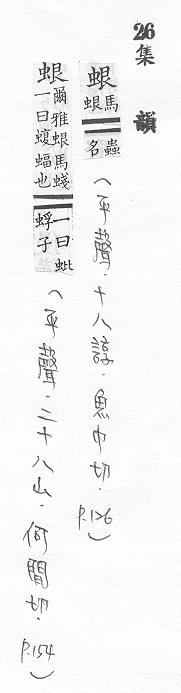 26 集韻
蜫馬
蜫蟲
名
(平聲．十八諄．魚巾切．P.126)
蜫爾雅蜫馬蝬
一曰蝮蝠也
一曰蚍
蜉子
(平聲．二十八山．何間切．P.154)